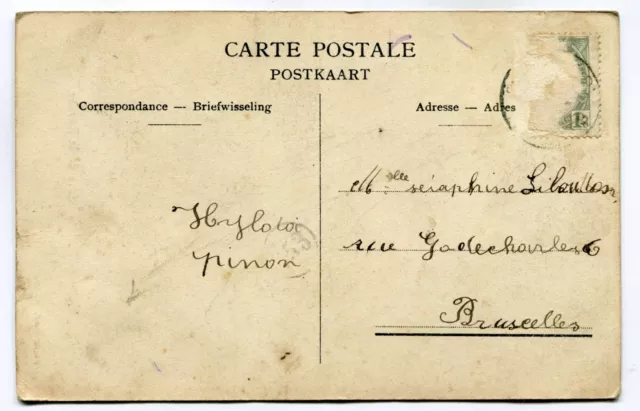 CARTE POSTALE
POSTKAART
Correspondance — Briefwisseling
Adresse — Adres
Mlle séraphine
rue Godecharles 6
Bruxelles
pinon